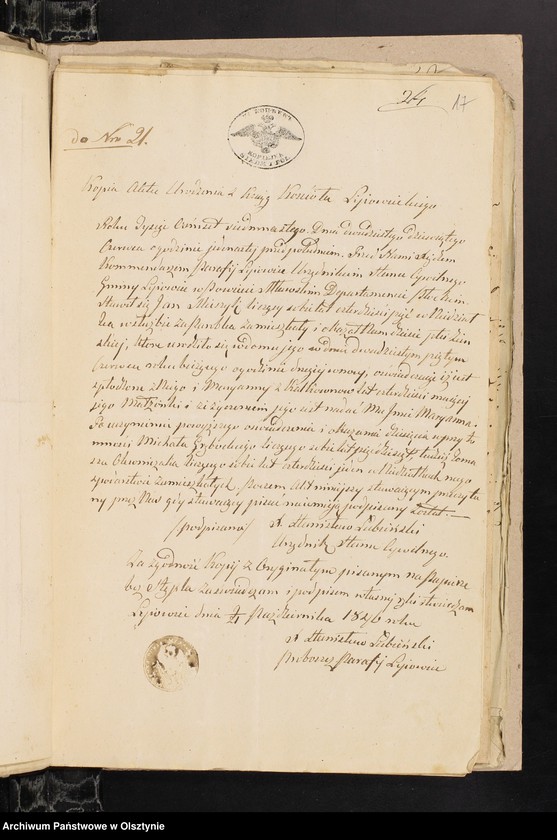 24 17
do Nro 21.
KOPIEJKA
Kopia Aktu Urodzenia z Księg Kościoła Lipowieckiego
Roku Tysiąc Ośmset siedmnastego. Dnia dwudziestego dziewiątego
Czerwca o godzinie jedenastej przed południem. Przed Nami Xiędzem
Kommendarzem Parafij Lipowiec Urzędnikiem Stanu Cywilnego
Gminy Lipowiec w Powiecie Mławskim Departamencie Płockim.
Stawił się Jan liczący sobie lat czterdzieści pięć
w służbie za Parobka zamieszkały i okazał Nam dziecię płci żeń
skiej, które urodziło się w domu jego w dniu dwudziestym piątym
Czerwca roku bieżącego o godzinie drugiej w nocy, oświadczając iż jest
spłodzone z Niego i Maryanny z lat czterdzieści mającej
jego Małżonki i że życzeniem jego jest nadać Mu Imie Maryanna.
Po uczynieniu powyższego oświadczenia i okazaniu dziecięcia w przyto
mności Michała liczącego sobie lat pięćdziesiąt tudzież Toma
sza liczącego sobie lat czterdzieści jeden
zamieszkałych. Poczem Akt niniejszy stawającym przeczyta
ny przez Nas gdy stawający pisać nie umieją podpisany został.
(podpisano) X. Stanisław Lubiński
Urzędnik Stanu Cywilnego.
Za zgodność Kopij z Oryginałem pisanym na Papierze
bez stępla zaświadczam i podpisem własnej ręki stwierdzam
Lipowiec dnia Października 1846 roku
X. Stanisław Lubiński
Proboszcz Parafij Lipowiec
Archiwum Państwowe w Olsztynie